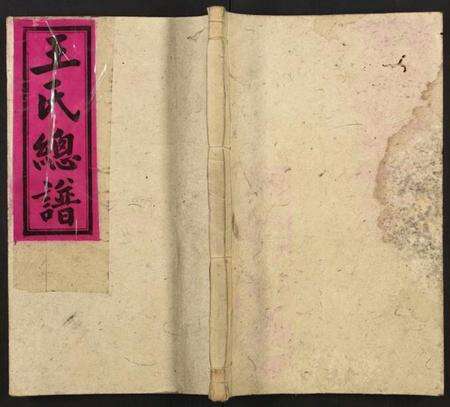 王氏總譜